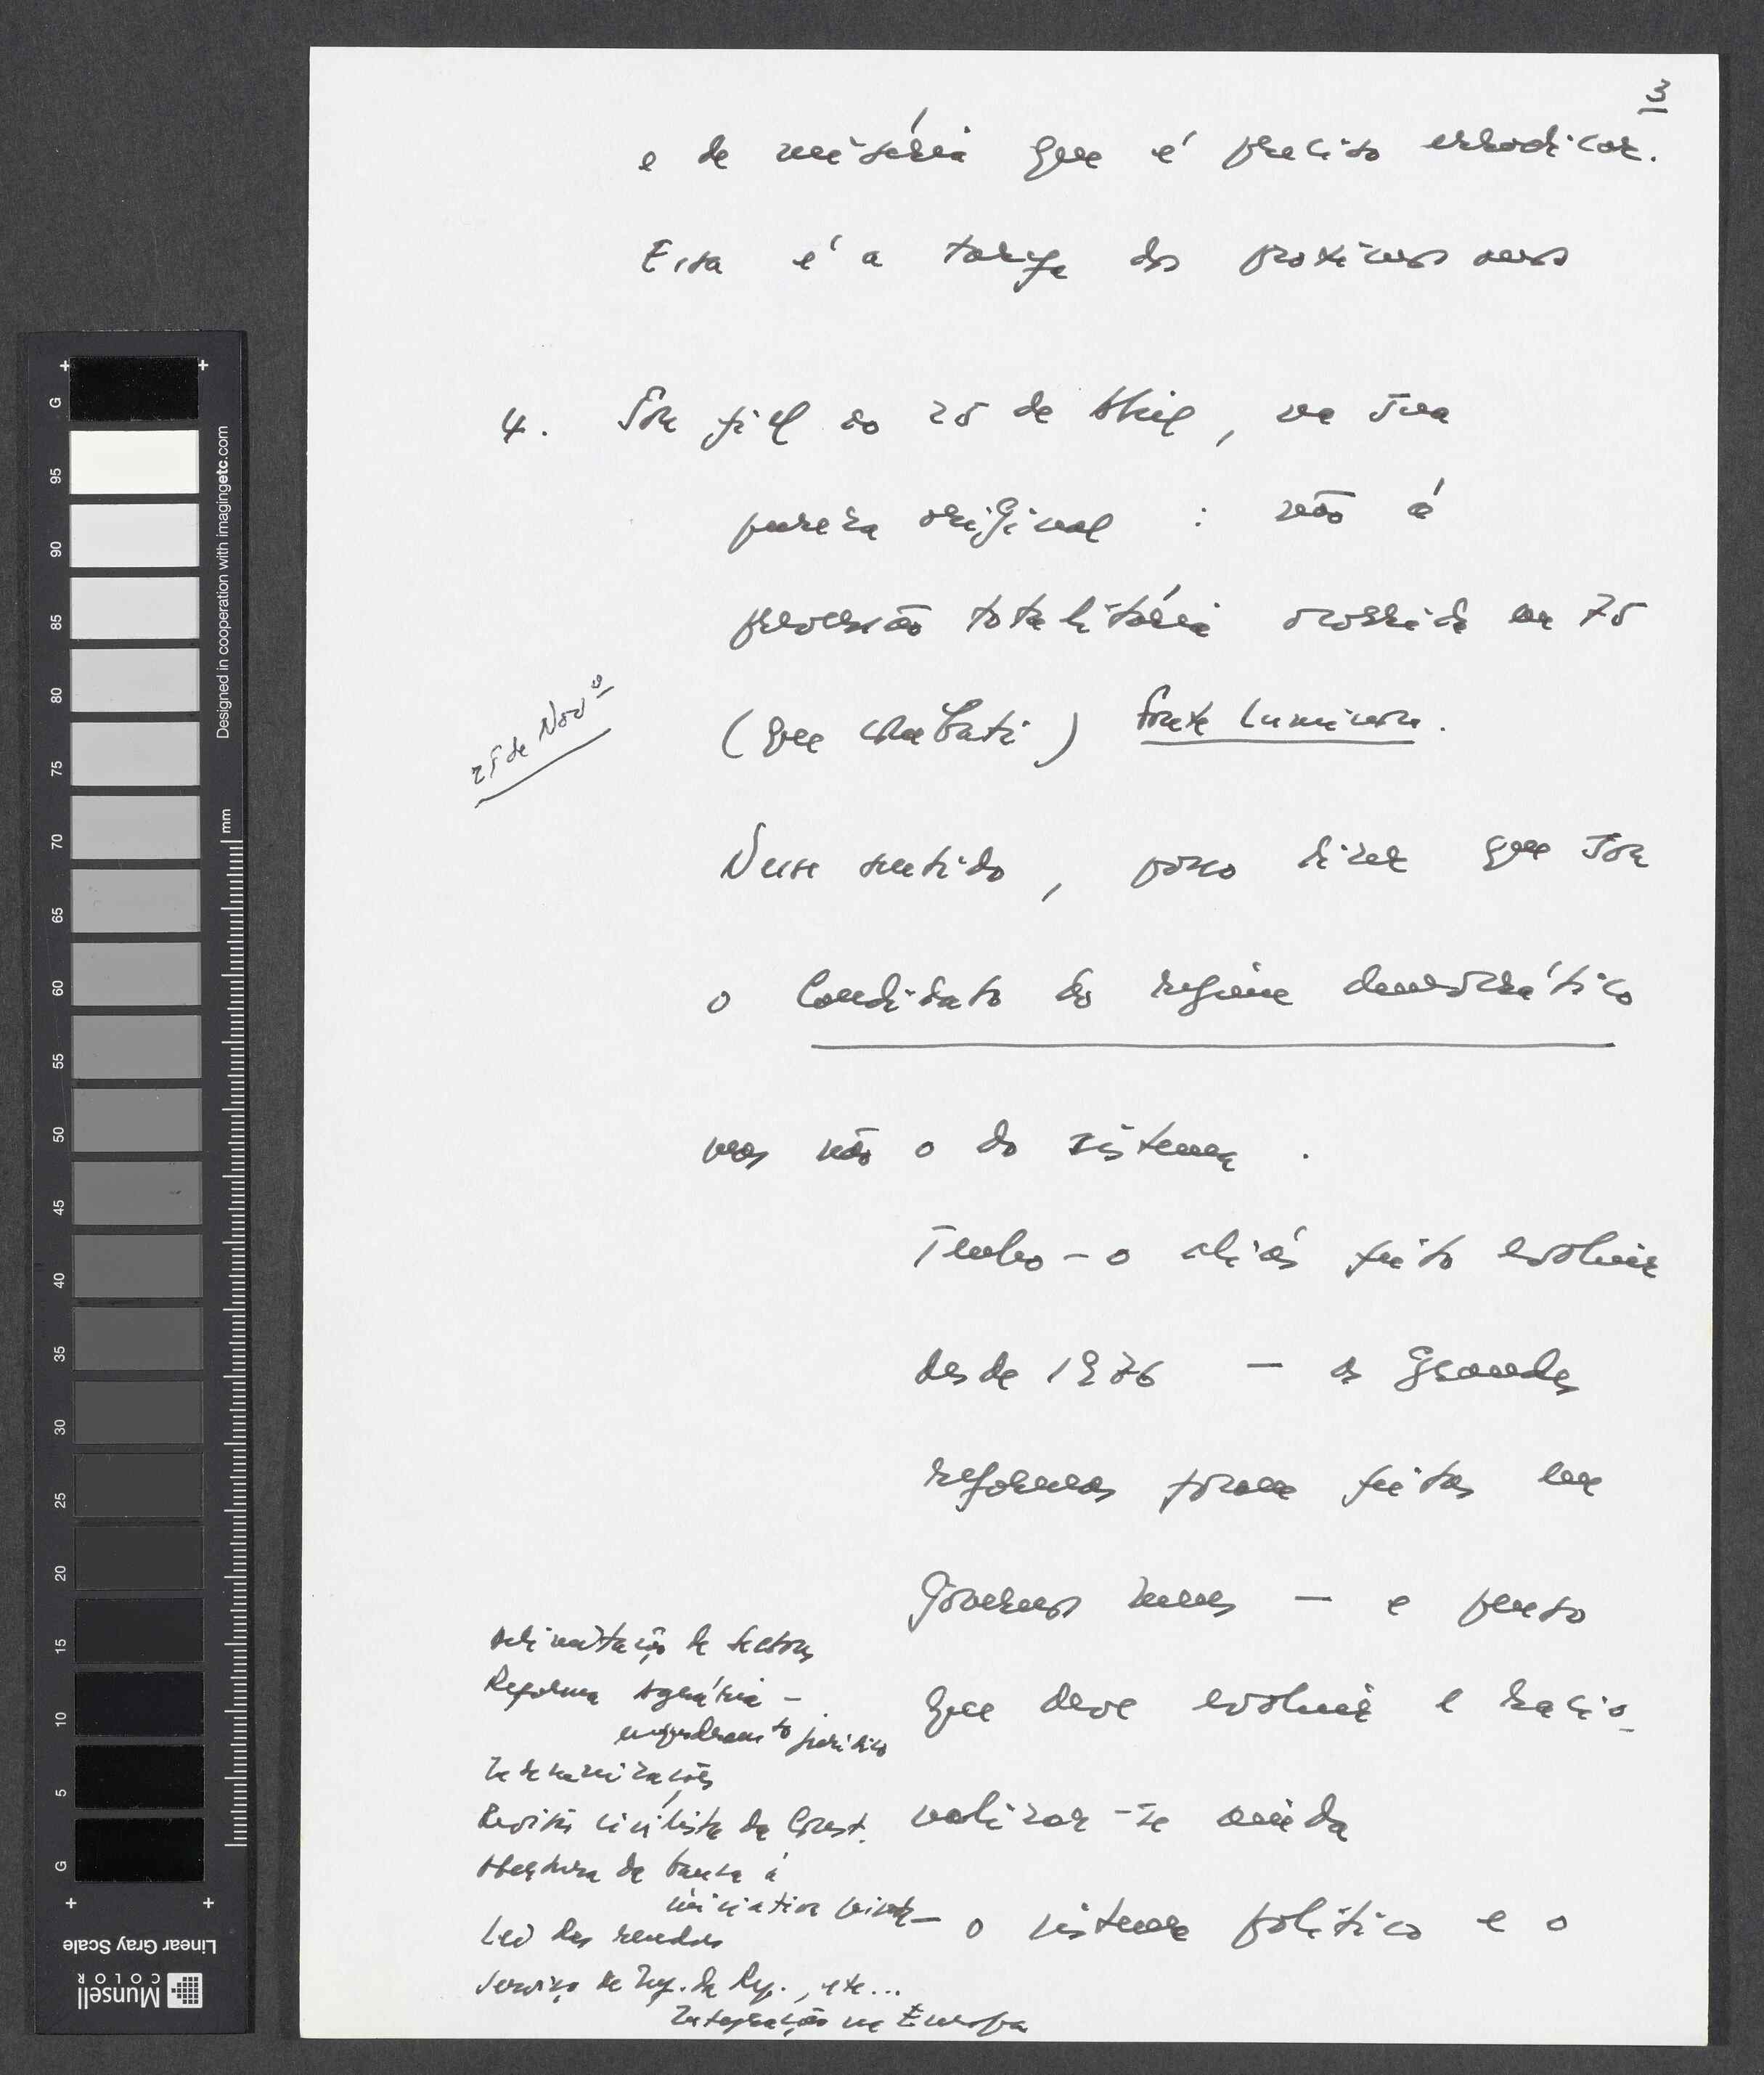 3
e de miséria que é preciso erradicar.
Essa é a tarefa dos próximos anos
4. Sou fiel ao 25 de Abril, na sua
pureza original : não à
perversão totalitária ocorrida em 75
(que combati) Fonte Luminosa.
25 de Novº
Nesse sentido, posso dizer que sou
o Candidato do regime democrático
mas não o do sistema.
Tenho-o aliás feito evoluir
desde 1976 — as grandes
reformas foram feitas em
Governos meus — e penso
que deve evoluir e racio-
nalizar-se ainda
— o sistema político e o
Delimitação de sectores
Reforma Agrária -
enquadramto jurídico
Indemnizações
Revisão civilista da Const.
Abertura da banca à
iniciativa privada
Lei das rendas
Serviço de Inf. da Rep., etc...
Integração na Europa
Designed in cooperation with imagingetc.com
mm
G
95
90
85
80
75
70
65
60
55
50
45
40
35
30
25
20
15
10
5
G
Linear Gray Scale
Munsell
COLOR